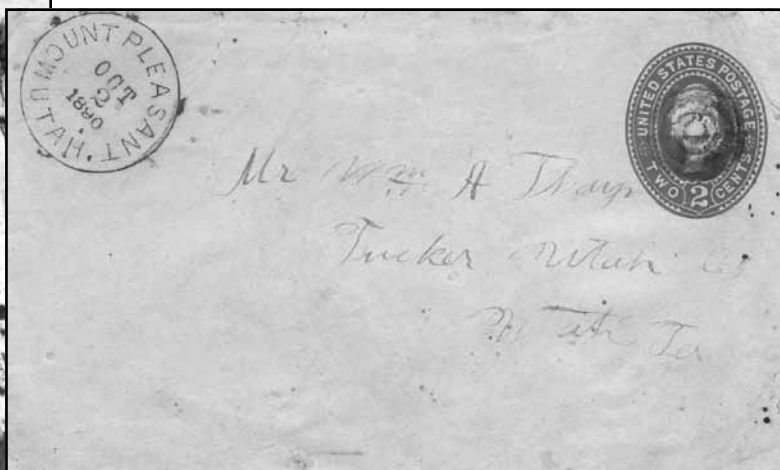 MOUNT PLEASANT
OCT
2
1890
UTAH.
UNITED STATES POSTAGE
TWO 2 CENTS
Mr Wm A Thayn
Tucker Utah Co
Utah Ter